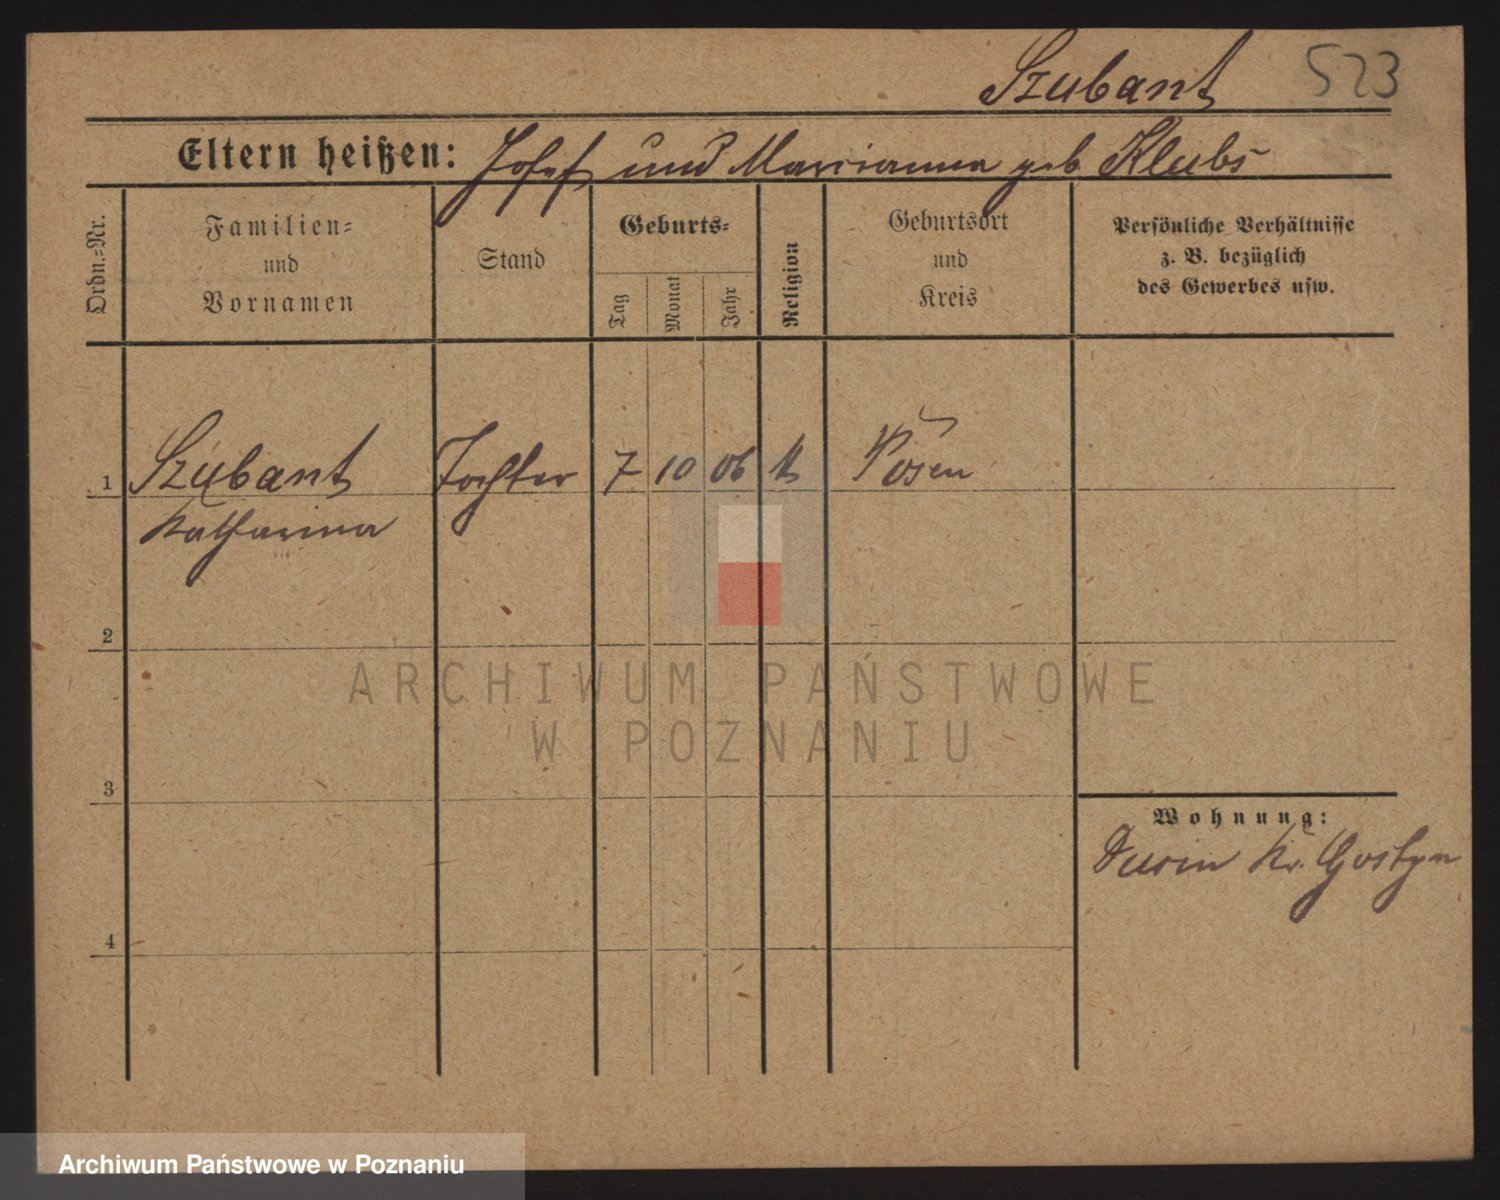 Szubant 523
Eltern heißen: Josef und Marianna geb Klubs
Ordn.-Nr.
Familien-
und
Vornamen
Stand
Geburts-
Tag
Monat
Jahr
Religion
Geburtsort
und
Kreis
Persönliche Verhältnisse
z. B. bezüglich
des Gewerbes usw.
1 Szubant Tochter 7 10 06 k Posen
Katharina
2
3
4
Wohnung:
Kr. Gostyn
ARCHIWUM PAŃSTWOWE
W POZNANIU
Archiwum Państwowe w Poznaniu